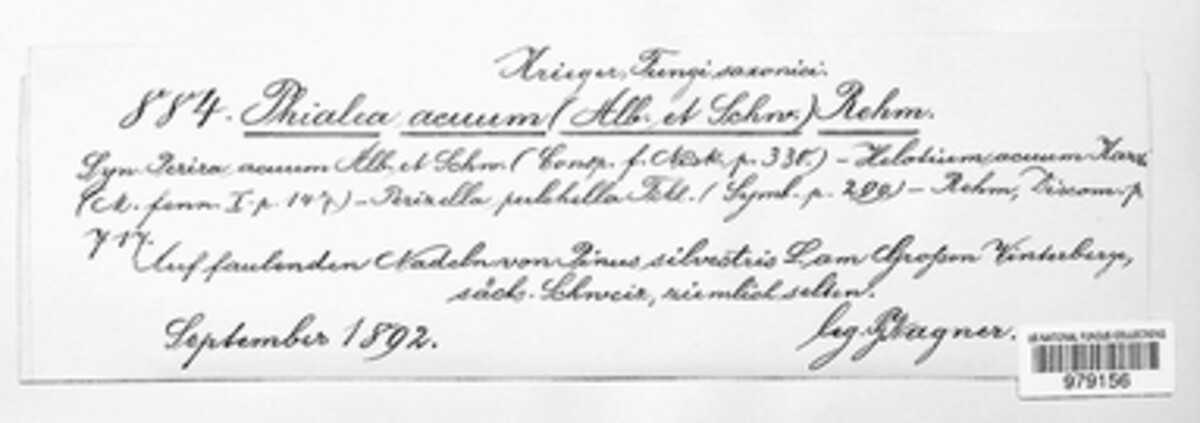 Krieger, Fungi saxonici.
884. Phialea acuum (Alb. et Schw.) Rehm.
Syn. Peziza acuum Alb. et Schw. (Consp. f. Nisk. p. 330.) – Helotium acuum Karst.
(M. fenn. I. p. 147) – Pezizella pulchella Fckl. (Symb. p. 299) – Rehm, Discom. p.
717.
Auf faulenden Nadeln von Pinus silvestris L. am Großen Winterberge,
sächs. Schweiz, ziemlich selten.
September 1892.
leg. G. Wagner.
US NATIONAL FUNGUS COLLECTIONS
979156